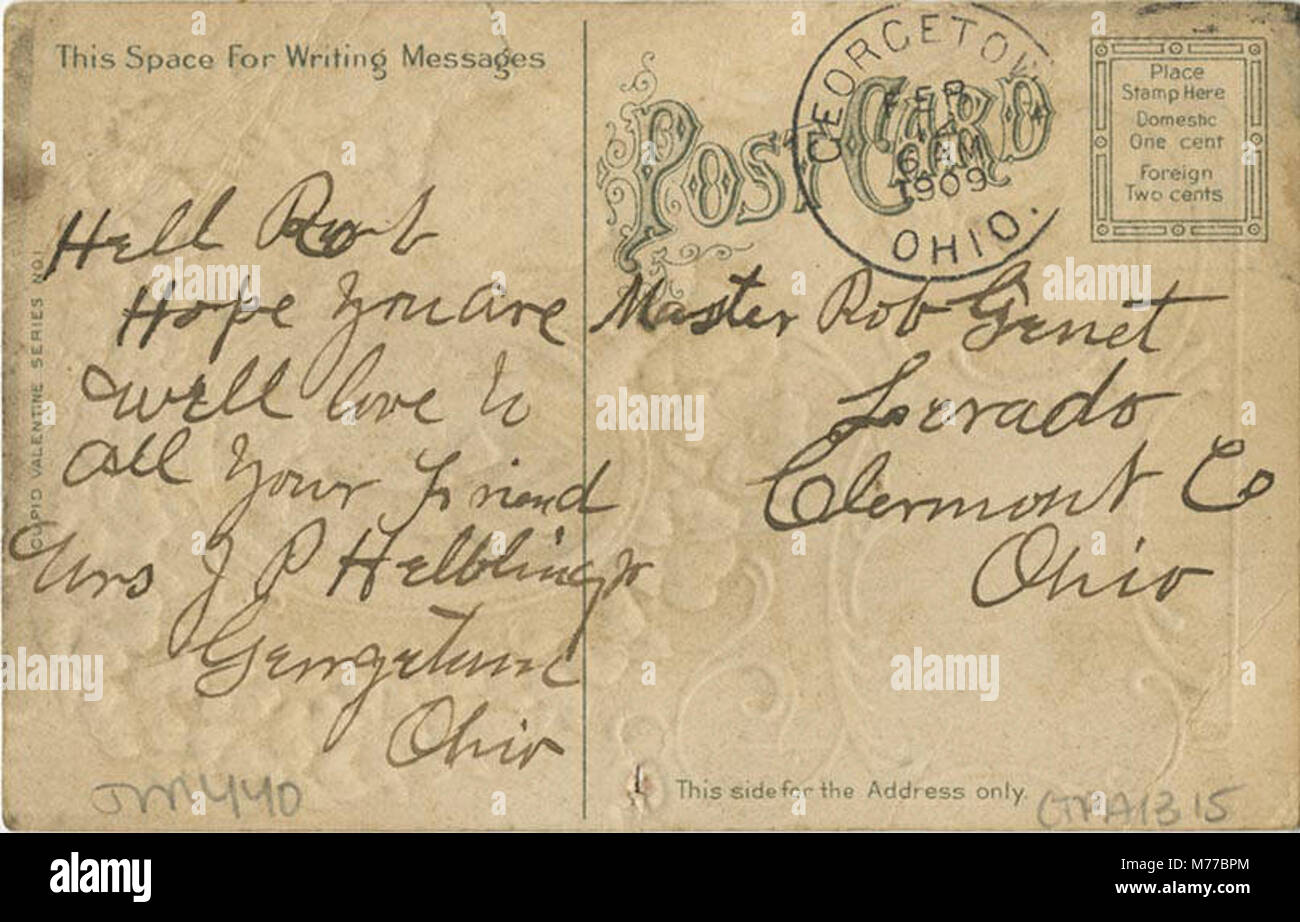 This Space For Writing Messages
Hell Rob
Hope you are
well love to
all your Friend
Mrs J P Helbling
Georgetown
Ohio
CUPID VALENTINE SERIES NO 1
POST CARD
GEORGETOWN
FEB
14
6 AM
1909
OHIO.
Place
Stamp Here
Domestic
One cent
Foreign
Two cents
Master Rob Genet
Lerado
Clermont Co
Ohio
This side for the Address only.
alamy
alamy
M77BPM
www.alamy.com